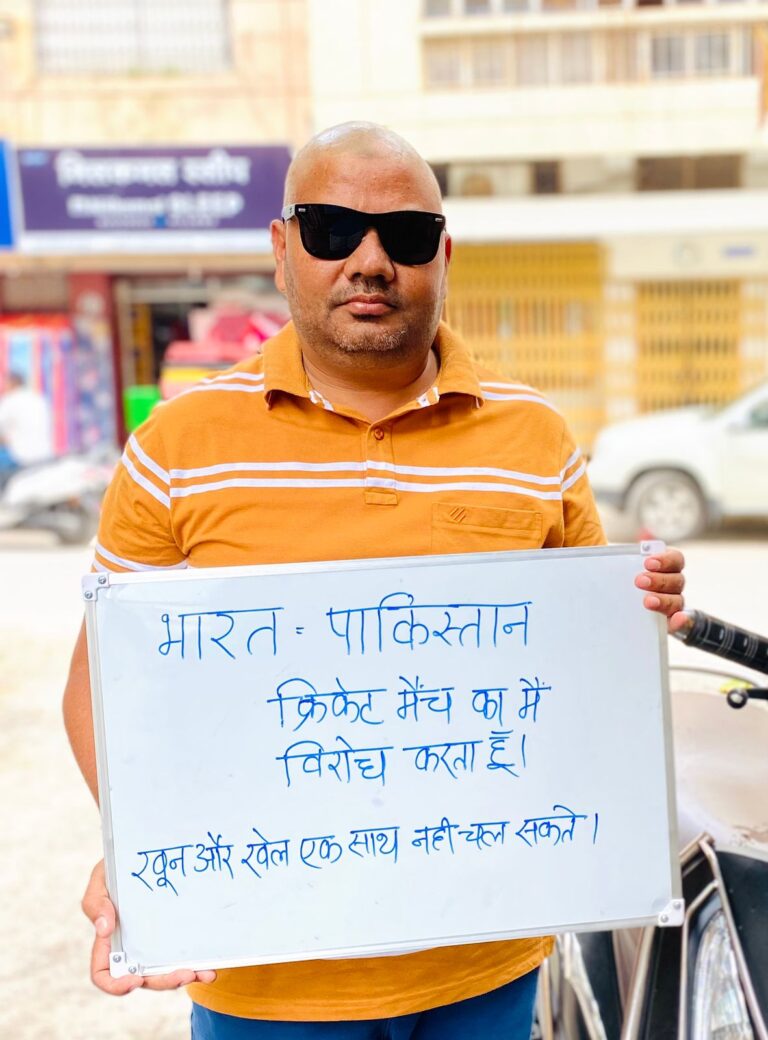 भारत = पाकिस्तान
क्रिकेट मैंच का मैं
विरोध करता हूँ।
खून और खेल एक साथ नही चल सकते।